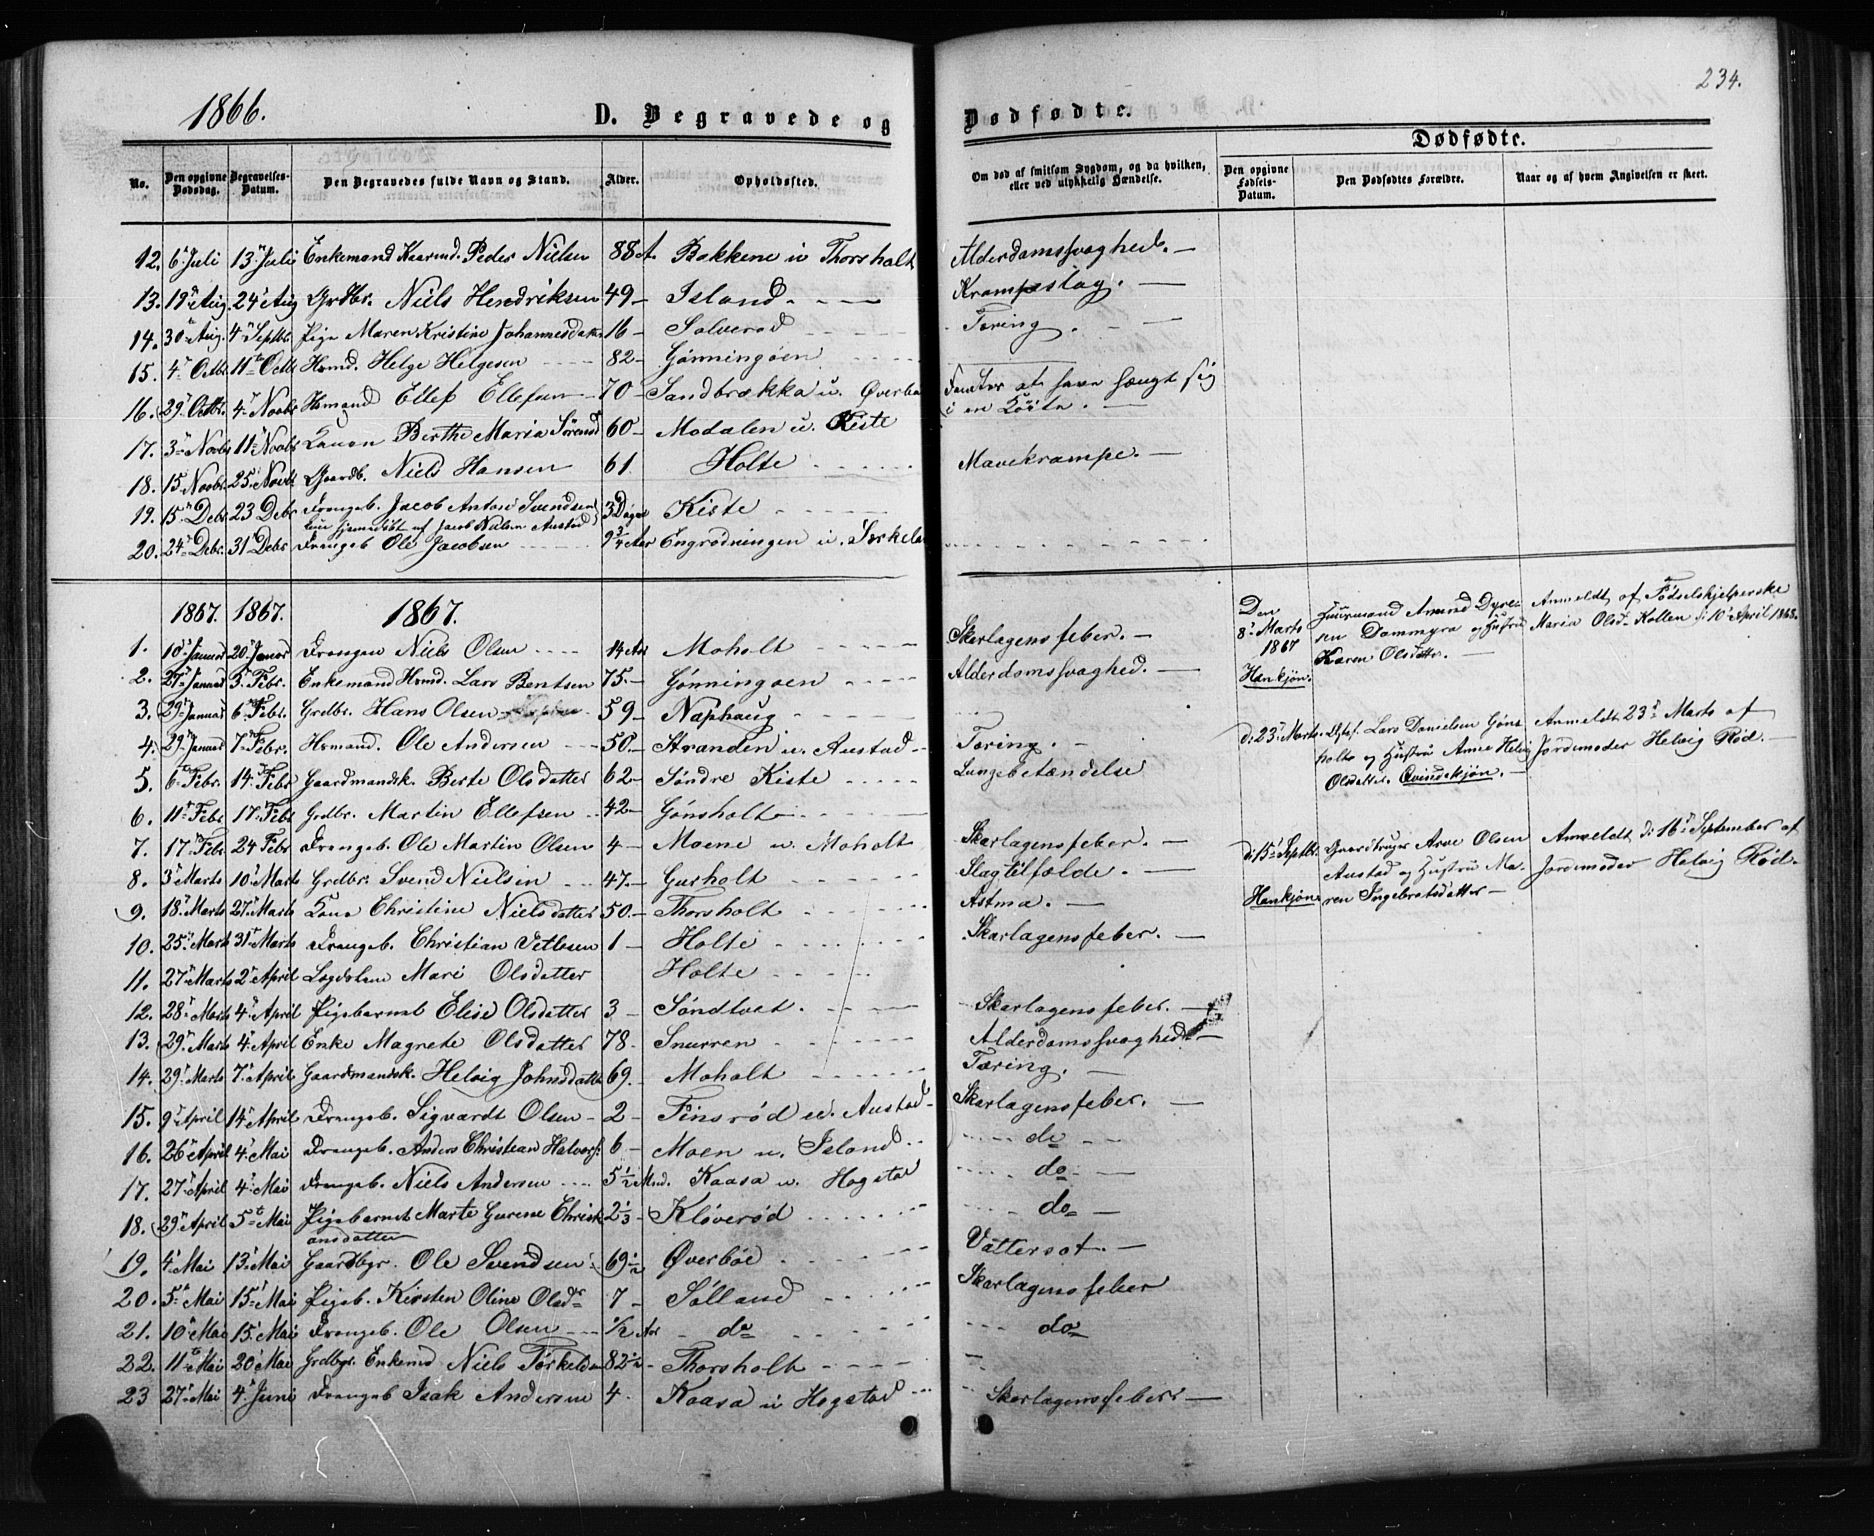 234.
1866.
D. Begravede og Dødfødte.
Dødfødte.
No. Den opgivne Dødsdag. Begravelses-Datum. Den Begravedes fulde Navn og Stand. Alder. Opholdssted. Om død af smitsom Sygdom, og da hvilken, eller ved ulykkelig Hændelse. Den opgivne Fødsels-Datum. Den Dødfødtes Forældre. Naar og af hvem Angivelsen er skeet.
12. 6 Juli 13 Juli Enkemand Peder Nielsen 88 A. Bakkene u Thorsholt Alderdomssvaghed. —
13. 19 Aug. 24 Aug Grdbr. Niels Hendriksen 49 — Island Krampeslag. —
14. 30 Aug. 4 Septbr. Pige Maren Kristine Johannesdatter 16 — Solverød Tæring.
15. 4 Octb 11 Octb Hsmd. Helge Helgesen 82 — Gönningöen
16. 29 Octbr. 4 Novbr Hsmand Ellef Ellefsen 70 — Sandbrækka u. Øverbø at have hængt sig
i en
17. 3 Novbr 11 Novbr Konen Berthe Maria Sørensd 60 — Modalen u. Kiste
18. 15 Novbr. 25 Novbr Gaardb. Niels Hansen 61. Holte Mavekrampe. —
19. 15 Debr. 23 Debr Drengeb. Jacob Anton Svendsen 3 Dage Kiste
hjemedøbt af Jacob Nielsen Austad
20. 24 Debr. 31 Debr Drengeb Ole Jacobsen 9 3/4 Aar Engrødningen u.
1867. 1867. 1867.
1. 10 Januar 20 Januar Drengen Niels Olsen 14 Aar Moholt Skarlagensfeber. —
2. 27 Januar 3 Febr. Enkemand Hsmd. Lars Bentsen 75. — Gönningöen Alderdomssvaghed. —
3. 29 Januar 6 Febr. Grdbr. Hans Olsen 59 — Naphaug
4. 29 Januar 7 Febr. Hsmand. Ole Andersen 50 — Stranden u. Austad Tæring. —
5. 6 Febr. 14 Febr Gaardmandsk. Berte Olsdatter 62 — Søndre Kiste Lungebetændelse
6. 11 Febr 17 Febr Grdbr. Martin Ellefsen 42 — Gønsholt
7. 17 Febr. 24 Febr Drengeb. Ole Martin Olsen 4 — Moene u. Moholt Skarlagensfeber. —
8. 3 Marts 10 Marts Grdbr. Svend Nielsen 47. — Gurholt Slagtilfælde. —
9. 18 Marts 27 Marts Kone Christine Nielsdatter 50. — Thorsholt Astma. —
10. 25 Marts 31 Marts Drengeb. Christian Vetlesen 1 — Holte Skarlagensfeber. —
11. 27 Marts 2 April Mari Olsdatter Holte
12. 28 Marts 4 April Pigebarnet Elise Olsdatter 3 — Søndtvet. Skarlagensfeber. —
13. 29 Marts 4 April Enke Magrete Olsdatter 78. — Snurren Alderdomssvaghed —
14. 29 Marts 7 April Gaardmandsk. Helvig Johnsdatter 69. — Moholt Tæring. —
15. 9 April 14 April Drengeb. Sigvardt Olsen 2 — Finsrød u. Austad Skarlagensfeber. —
16. 26 April 4 Mai Drengeb. Anders Christian Halvors. 6 — Moen u. Island do —
17. 27 April 4 Mai Drengeb. Niels Andersen 5 1/2 Mnd. Kaasa u. Hogstad do —
18. 29 April 5 Mai Pigebarnet Marte Gurene Christi- 2 1/3 — Kløverød do —
ansdatter
19. 4 Mai 13 Mai Gaardbgr. Ole Svendsen 69 1/2 Øverböe Vattersot. —
20. 5 Mai 15 Mai Pigeb. Kirsten Oline Olsdr 7 — Sölland Skarlagensfeber
21. 10 Mai 15 Mai Drengeb. Ole Olsen 1/2 Aar do do
22. 11 Mai 20 Mai Grdbgr. Enkemd Niels Torkelsen 82 1/2 Thorsholt
23 27 Mai 4 Juni Drengeb Isak Andersen 4. Kaasa u Hogstad Skarlagensfeber —
Den 8 Marts 1867 Hankjøn.
Huusmand Amund Dyre-
sen Dammyra og Hustru
Karen Olsdatter. —
Anmeldt af Fødselshjelperske
Maria Olsd. Holten d: 10 April 1868.
d: 23 Marts. Lars Danielsen Gøns-
holt og Hustru Anne Helvig
Olsdatter. Qvindekjøn. —
Anmeldt 23 Marts af
Jordemoder Helvig Rød. —
d: 15 Septbr. Hankjøn
Gaardbruger Arve Olsen
Austad og Hustru Ma-
ren Ingebretsdatter —
Anmeldt d: 16 September af
Jordemoder Helvig Rød.